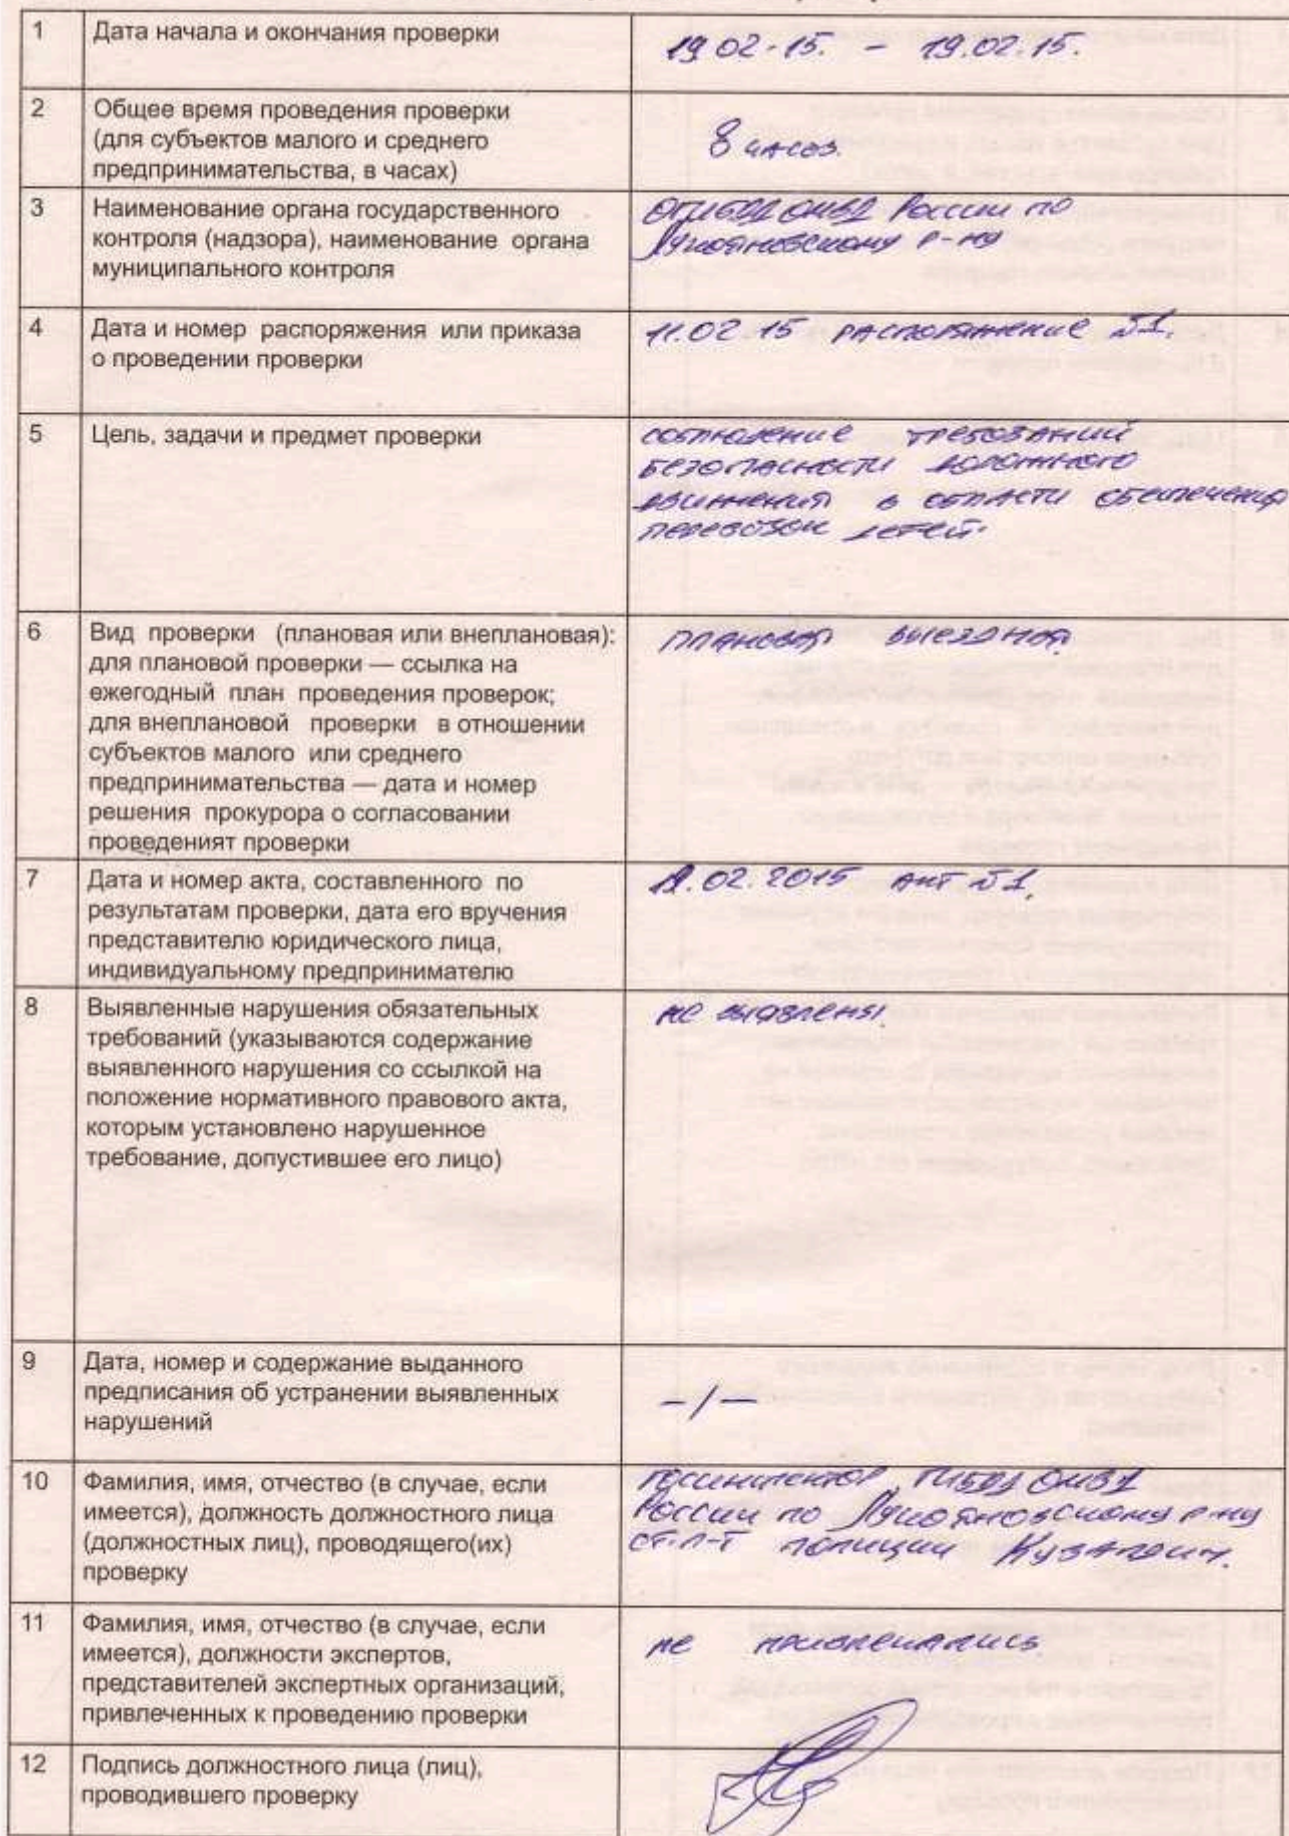 1 Дата начала и окончания проверки
19.02.15. – 19.02.15.
2 Общее время проведения проверки
(для субъектов малого и среднего
предпринимательства, в часах)
8 часов.
3 Наименование органа государственного
контроля (надзора), наименование органа
муниципального контроля
ОГИБДД ОМВД России по
Лукояновскому р-ну
4 Дата и номер распоряжения или приказа
о проведении проверки
11.02.15 распоряжение №1.
5 Цель, задачи и предмет проверки
соблюдение требований
безопасности дорожного
движения в области обеспечения
перевозок детей.
6 Вид проверки (плановая или внеплановая):
для плановой проверки — ссылка на
ежегодный план проведения проверок;
для внеплановой проверки в отношении
субъектов малого или среднего
предпринимательства — дата и номер
решения прокурора о согласовании
проведеният проверки
плановая выездная
7 Дата и номер акта, составленного по
результатам проверки, дата его вручения
представителю юридического лица,
индивидуальному предпринимателю
19.02.2015 акт №1.
8 Выявленные нарушения обязательных
требований (указываются содержание
выявленного нарушения со ссылкой на
положение нормативного правового акта,
которым установлено нарушенное
требование, допустившее его лицо)
не выявлены
9 Дата, номер и содержание выданного
предписания об устранении выявленных
нарушений
–/–
10 Фамилия, имя, отчество (в случае, если
имеется), должность должностного лица
(должностных лиц), проводящего(их)
проверку
госинспектор ГИБДД ОМВД
России по Лукояновскому р-ну
ст. л-т полиции
11 Фамилия, имя, отчество (в случае, если
имеется), должности экспертов,
представителей экспертных организаций,
привлеченных к проведению проверки
не привлекались
12 Подпись должностного лица (лиц),
проводившего проверку